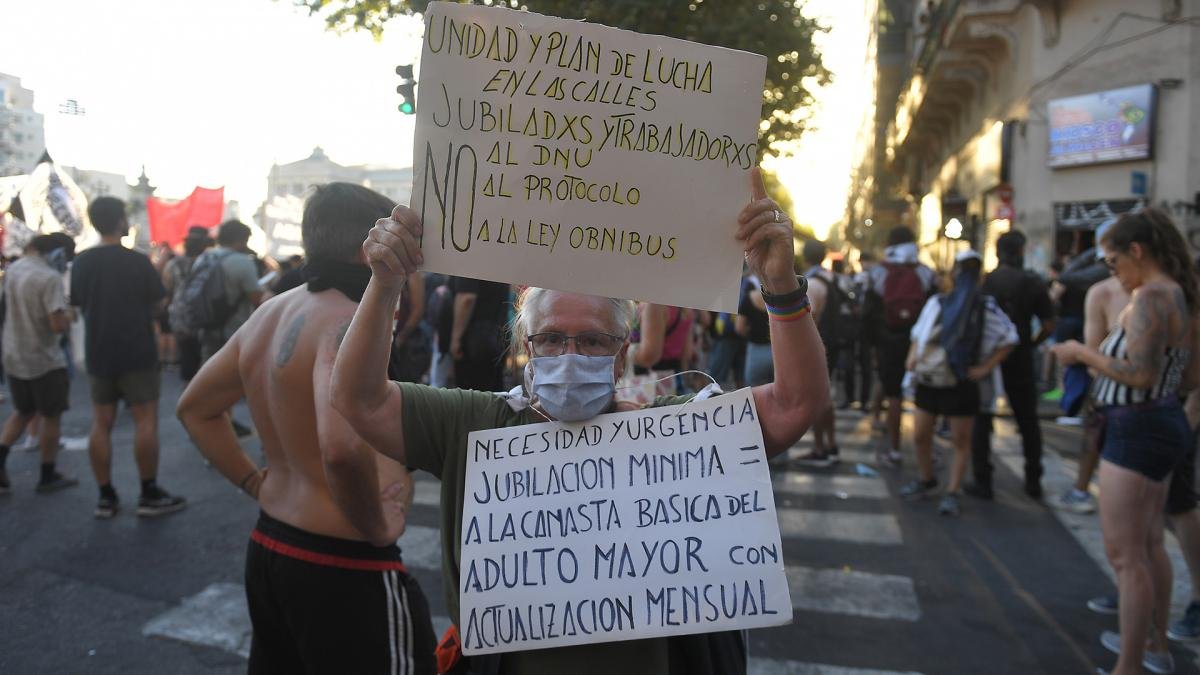 UNIDAD Y PLAN DE LUCHA
EN LAS CALLES
JUBILADXS Y TRABAJADORXS
NO AL DNU
AL PROTOCOLO
A LA LEY OBNIBUS
NECESIDAD Y URGENCIA
JUBILACION MINIMA =
A LA CANASTA BASICA DEL
ADULTO MAYOR CON
ACTUALIZACION MENSUAL